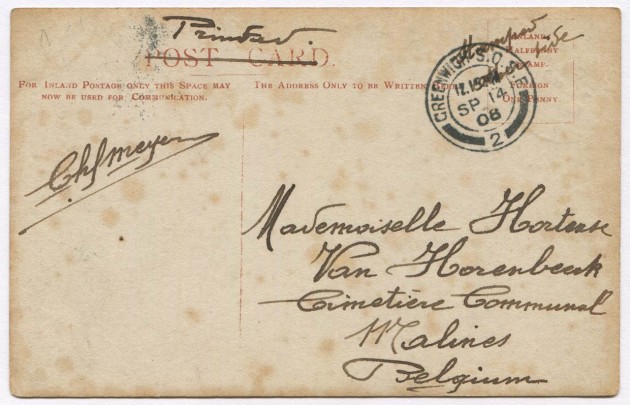 Printed
POST CARD.
FOR INLAND POSTAGE ONLY THIS SPACE MAY
NOW BE USED FOR COMMUNICATION.
THE ADDRESS ONLY TO BE WRITTEN
INLAND
HALFPENNY
STAMP.
FOREIGN
ONE PENNY
Stamp
side
GREENWICH S.O. S.E.
11.15
SP 14
08
2
Ch Meyer
Mademoiselle Hortense
Van Horenbeeck
Cimetière Communal
Malines
Belgium